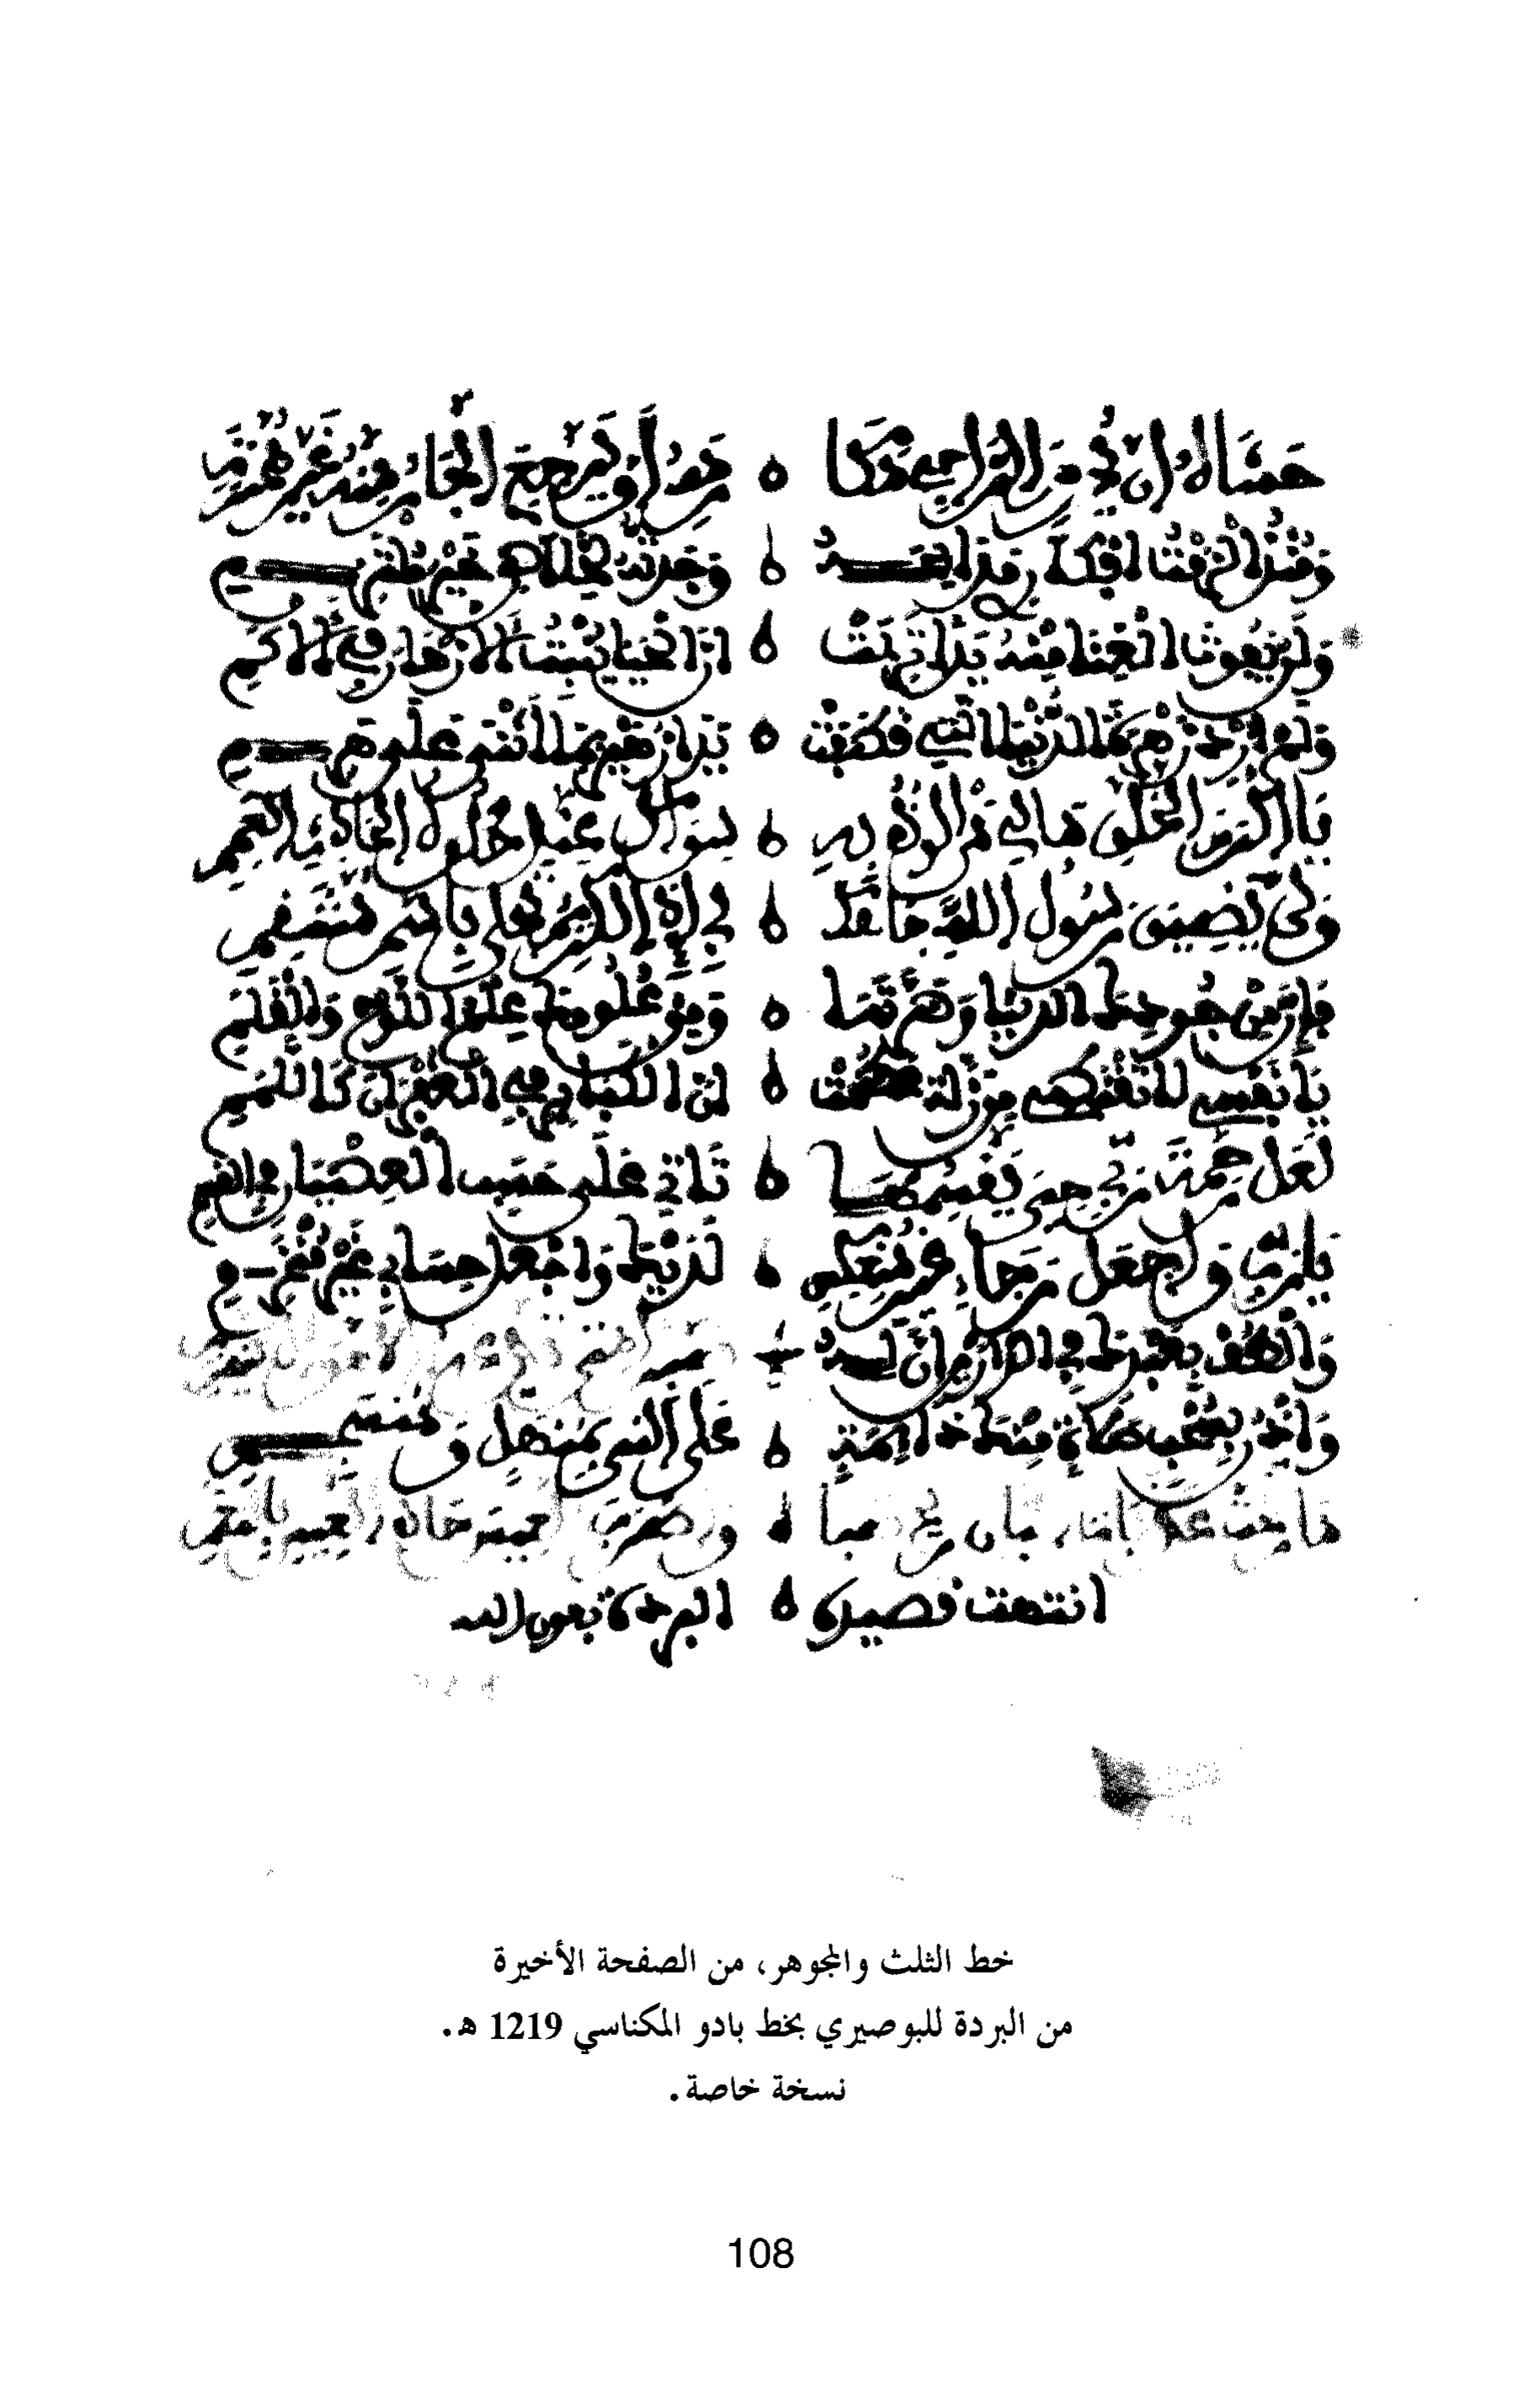 حَشَاهُ ان يُحْرِمَ الراجي مَكَا ه رِمَهُ أَوْ يَرْجِعَ الْجَارُ مِنْهُ غَيْرَ مُحْتَرَمِ
وَمُنْذُ الْزَمْتُ افْكَارِي مَدَايِحَـهُ ه وَجَدْتُهُ لِخَلَاصِي خَيْرَ مُلْتَزِمِ
وَلَنْ يَفُوتَ الْغِنَا مِنْهُ يَدًا تَرِبَتْ ه انَّ الْحَيَا يُنْبِتُ الْازْهَارَ فِي الْاكَمِ
وَلَمْ ارِدْ زَهْرَةَ الدُّنْيَا التِي اقْتَطَفَتْ ه يَدَا زُهَيْرٍ بِمَا أَثْنَى عَلَى هَرِمِ
يَا اكْرَمَ الْخَلْقِ مَا لِي مَنْ الُوذُ بِهِ ه سِوَاكَ عِنْدَ حُلُولِ الْحَادِثِ الْعَمِمِ
وَلَنْ يَضِيقَ رَسُولَ اللَّهِ جَاهُكَ ه بِي إِذَا الْكَرِيمُ تَحَلَّى بِاسْمِ مُنْتَقِمِ
فَإِنَّ مِنْ جُودِكَ الدُّنْيَا وَضَرَّتَهَا ه وَمِنْ عُلُومِكَ عِلْمَ اللَّوْحِ وَالْقَلَمِ
يَا نَفْسِ لَا تَقْنَطِي مِنْ زَلَّةٍ عَظُمَتْ ه انَّ الْكَبَائِرَ فِي الْغُفْرَانِ كَاللَّمَمِ
لَعَلَّ رَحْمَةَ رَبِّي حِينَ يَقْسِمُهَا ه تَاتِي عَلَى حَسَبِ الْعِصْيَانِ فِي الْقِسَمِ
يَارَبِّ وَاجْعَلْ رَجَاءِي غَيْرَ مُنْعَكِسٍ ه لَدَيْكَ وَاجْعَلْ حِسَابِي غَيْرَ مُنْخَرِمِ
وَالْطُفْ بِعَبْدِكَ فِي الدَّارَيْنِ انَّ لَـهُ
وَاذَنْ بِسُحْبِ صَلَاةٍ مِنْكَ دَايِمَةٍ ه عَلَى النَّبِيِّ بِمُنْهَلٍّ وَمُنْسَجِمِ
انتهت قصيدة ه البردة بعون الله
خط الثلث والمجوهر، من الصفحة الأخيرة
من البردة للبوصيري بخط بادو المكناسي 1219 ه.
نسخة خاصة.
108